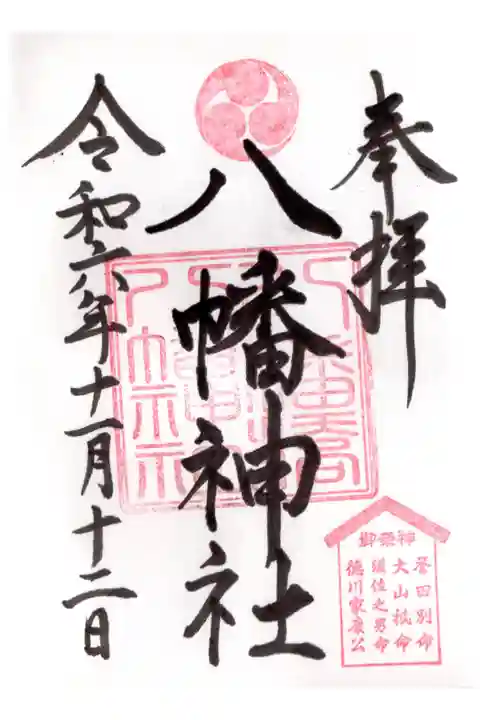 奉拝
八幡神社
令和六年十一月十二日
御祭神
誉田別命
大山祇命
須佐之男命
徳川家康公